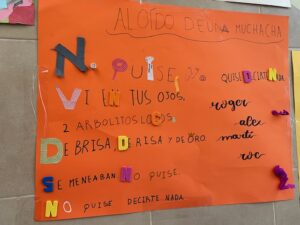 AL OÍDO DE UNA MUCHACHA
N. PUISE N.
QUISE DECIRTE NADA
VI EN TUS OJOS,
2 ARBOLITOS LOCOS,
DE BRISA, DE RISA Y DE ORO.
SE MENEABAN NO PUISE.
NO PUISE DECIRTE NADA
roger
alex
martí
roc